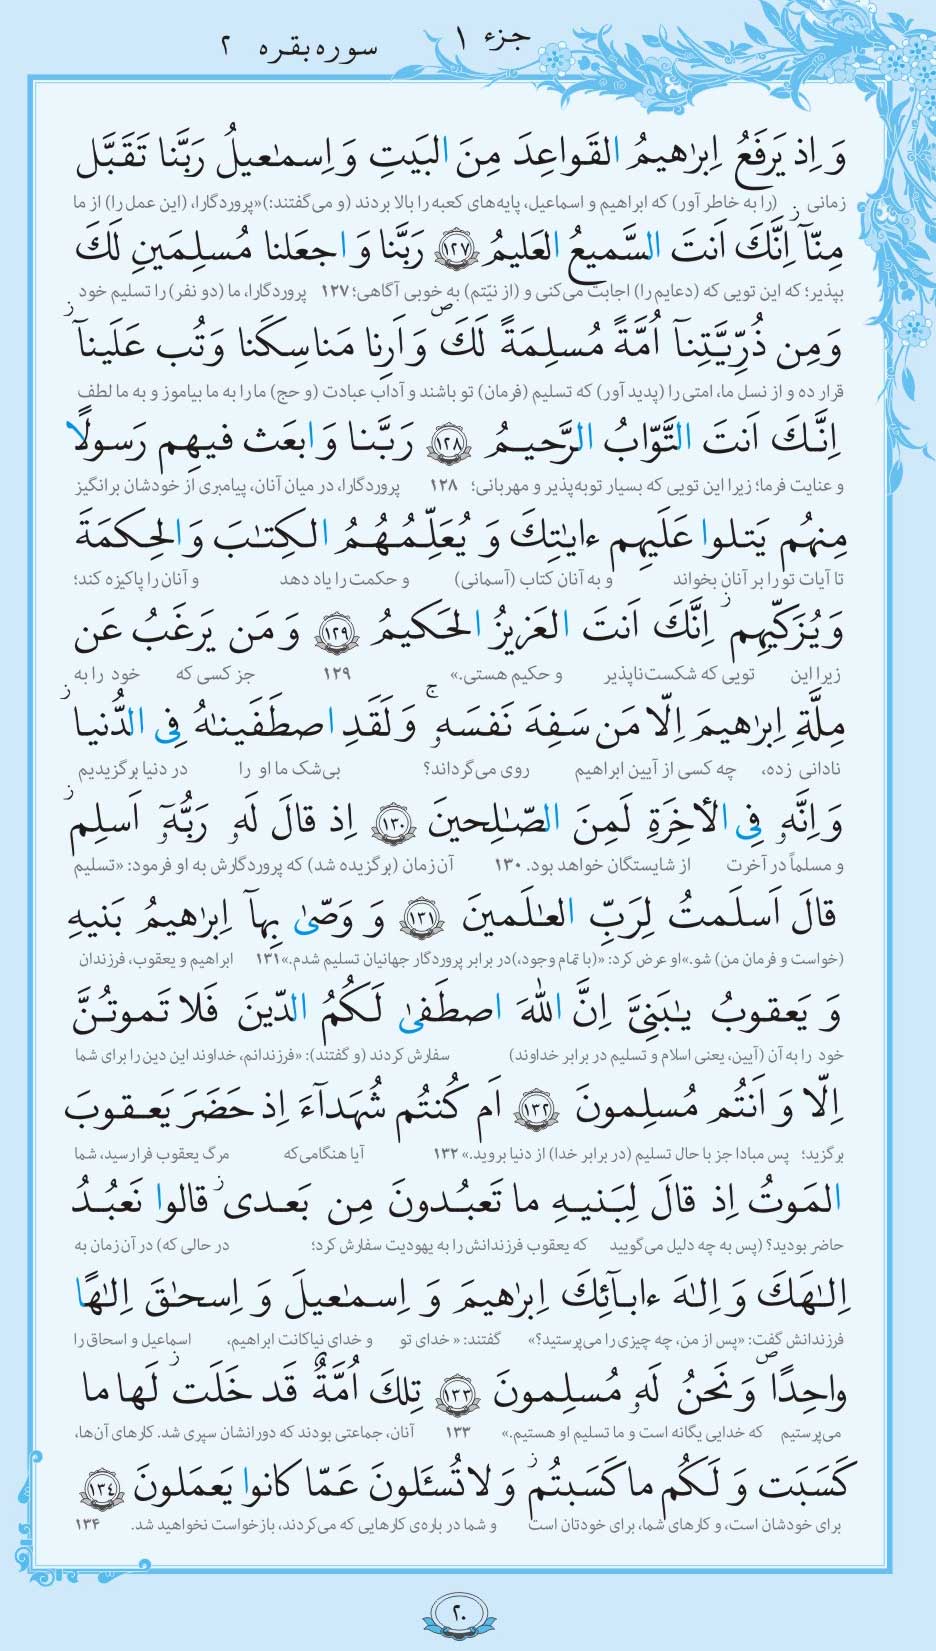 جزء ۱
سوره بقره ۲
وَ اِذ یَرفَعُ اِبرٰهیمُ القَواعِدَ مِنَ البَیتِ وَ اِسمٰعیلُ رَبَّنا تَقَبَّل
زمانی (را به خاطر آور) که ابراهیم و اسماعیل، پایه‌های کعبه را بالا بردند (و می‌گفتند:)«پروردگارا، (این عمل را) از ما
مِنّآ ۖز اِنَّكَ اَنتَ السَّمیعُ العَلیمُ ﴿۱۲۷﴾ رَبَّنا وَ اجعَلنا مُسلِمَینِ لَكَ
بپذیر؛ که این تویی که (دعایم را) اجابت می‌کنی و (از نیّتم) به خوبی آگاهی؛ ۱۲۷ پروردگارا، ما (دو نفر) را تسلیم خود
وَ مِن ذُرِّیَّتِنآ اُمَّةً مُسلِمَةً لَكَ ص وَ اَرِنا مَناسِكَنا وَ تُب عَلَینآ ز
قرار ده و از نسل ما، امتی را (پدید آور) که تسلیم (فرمان) تو باشند و آداب عبادت (و حج) ما را به ما بیاموز و به ما لطف
اِنَّكَ اَنتَ التَّوّابُ الرَّحیمُ ﴿۱۲۸﴾ رَبَّنا وَ ابعَث فیهِم رَسولًا
و عنایت فرما؛ زیرا این تویی که بسیار توبه‌پذیر و مهربانی؛ ۱۲۸ پروردگارا، در میان آنان، پیامبری از خودشان برانگیز
مِنهُم یَتلوا عَلَیهِم ءایٰتِكَ وَ یُعَلِّمُهُمُ الكِتٰبَ وَ الحِكمَةَ
تا آیات تو را بر آنان بخواند و به آنان کتاب (آسمانی) و حکمت را یاد دهد و آنان را پاکیزه کند؛
وَ یُزَكّیهِم ز اِنَّكَ اَنتَ العَزیزُ الحَكیمُ ﴿۱۲۹﴾ وَ مَن یَرغَبُ عَن
زیرا این تویی که شکست‌ناپذیر و حکیم هستی.» ۱۲۹ جز کسی که خود را به
مِلَّةِ اِبرٰهیمَ اِلّا مَن سَفِهَ نَفسَهٗ ج وَ لَقَدِ اصطَفَینٰهُ فِی الدُّنیا ز
نادانی زده، چه کسی از آیین ابراهیم روی می‌گرداند؟ بی‌شک ما او را در دنیا برگزیدیم
وَ اِنَّهٗ فِی الأٰخِرَةِ لَمِنَ الصّٰلِحینَ ﴿۱۳۰﴾ اِذ قالَ لَهٗ رَبُّهٗٓ اَسلِم ز
و مسلماً در آخرت از شایستگان خواهد بود. ۱۳۰ آن زمان (برگزیده شد) که پروردگارش به او فرمود: «تسلیم
قالَ اَسلَمتُ لِرَبِّ العٰلَمینَ ﴿۱۳۱﴾ وَ وَصّیٰ بِهآ اِبرٰهیمُ بَنیهِ
(خواست و فرمان من) شو.»او عرض کرد: «(با تمام وجود،)در برابر پروردگار جهانیان تسلیم شدم.»۱۳۱ ابراهیم و یعقوب، فرزندان
وَ یَعقوبُ یٰبَنِیَّ اِنَّ اللهَ اصطَفیٰ لَكُمُ الدّینَ فَلا تَموتُنَّ
خود را به آن (آیین، یعنی اسلام و تسلیم در برابر خداوند) سفارش کردند (و گفتند): «فرزندانم، خداوند این دین را برای شما
اِلّا وَ اَنتُم مُسلِمونَ ﴿۱۳۲﴾ اَم كُنتُم شُهَدآءَ اِذ حَضَرَ یَعقوبَ
برگزید؛ پس مبادا جز با حال تسلیم (در برابر خدا) از دنیا بروید.» ۱۳۲ آیا هنگامی‌که مرگ یعقوب فرارسید، شما
المَوتُ اِذ قالَ لِبَنیهِ ما تَعبُدونَ مِن بَعدی ز قالوا نَعبُدُ
حاضر بودید؟ (پس به چه دلیل می‌گویید که یعقوب فرزندانش را به یهودیت سفارش کرد؛ در حالی که) در آن زمان به
اِلٰهَكَ وَ اِلٰهَ ءابآئِكَ اِبرٰهیمَ وَ اِسمٰعیلَ وَ اِسحٰقَ اِلٰهًا
فرزندانش گفت: «پس از من، چه چیزی را می‌پرستید؟» گفتند: « خدای تو و خدای نیاکانت ابراهیم، اسماعیل و اسحاق را
واحِدًا ص وَ نَحنُ لَهٗ مُسلِمونَ ﴿۱۳۳﴾ تِلكَ اُمَّةٌ قَد خَلَت ز لَها ما
می‌پرستیم که خدایی یگانه است و ما تسلیم او هستیم.» ۱۳۳ آنان، جماعتی بودند که دورانشان سپری شد. کارهای آن‌ها،
كَسَبَت وَ لَكُم ما كَسَبتُم ز وَ لا تُسـَٔلونَ عَمّا كانوا یَعمَلونَ ﴿۱۳۴﴾
برای خودشان است، و کارهای شما، برای خودتان است و شما در باره‌ی کارهایی که می‌کردند، بازخواست نخواهید شد. ۱۳۴
۲۰